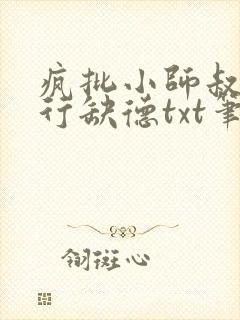 疯批小師叔
行缺德txt筆
翎斑心